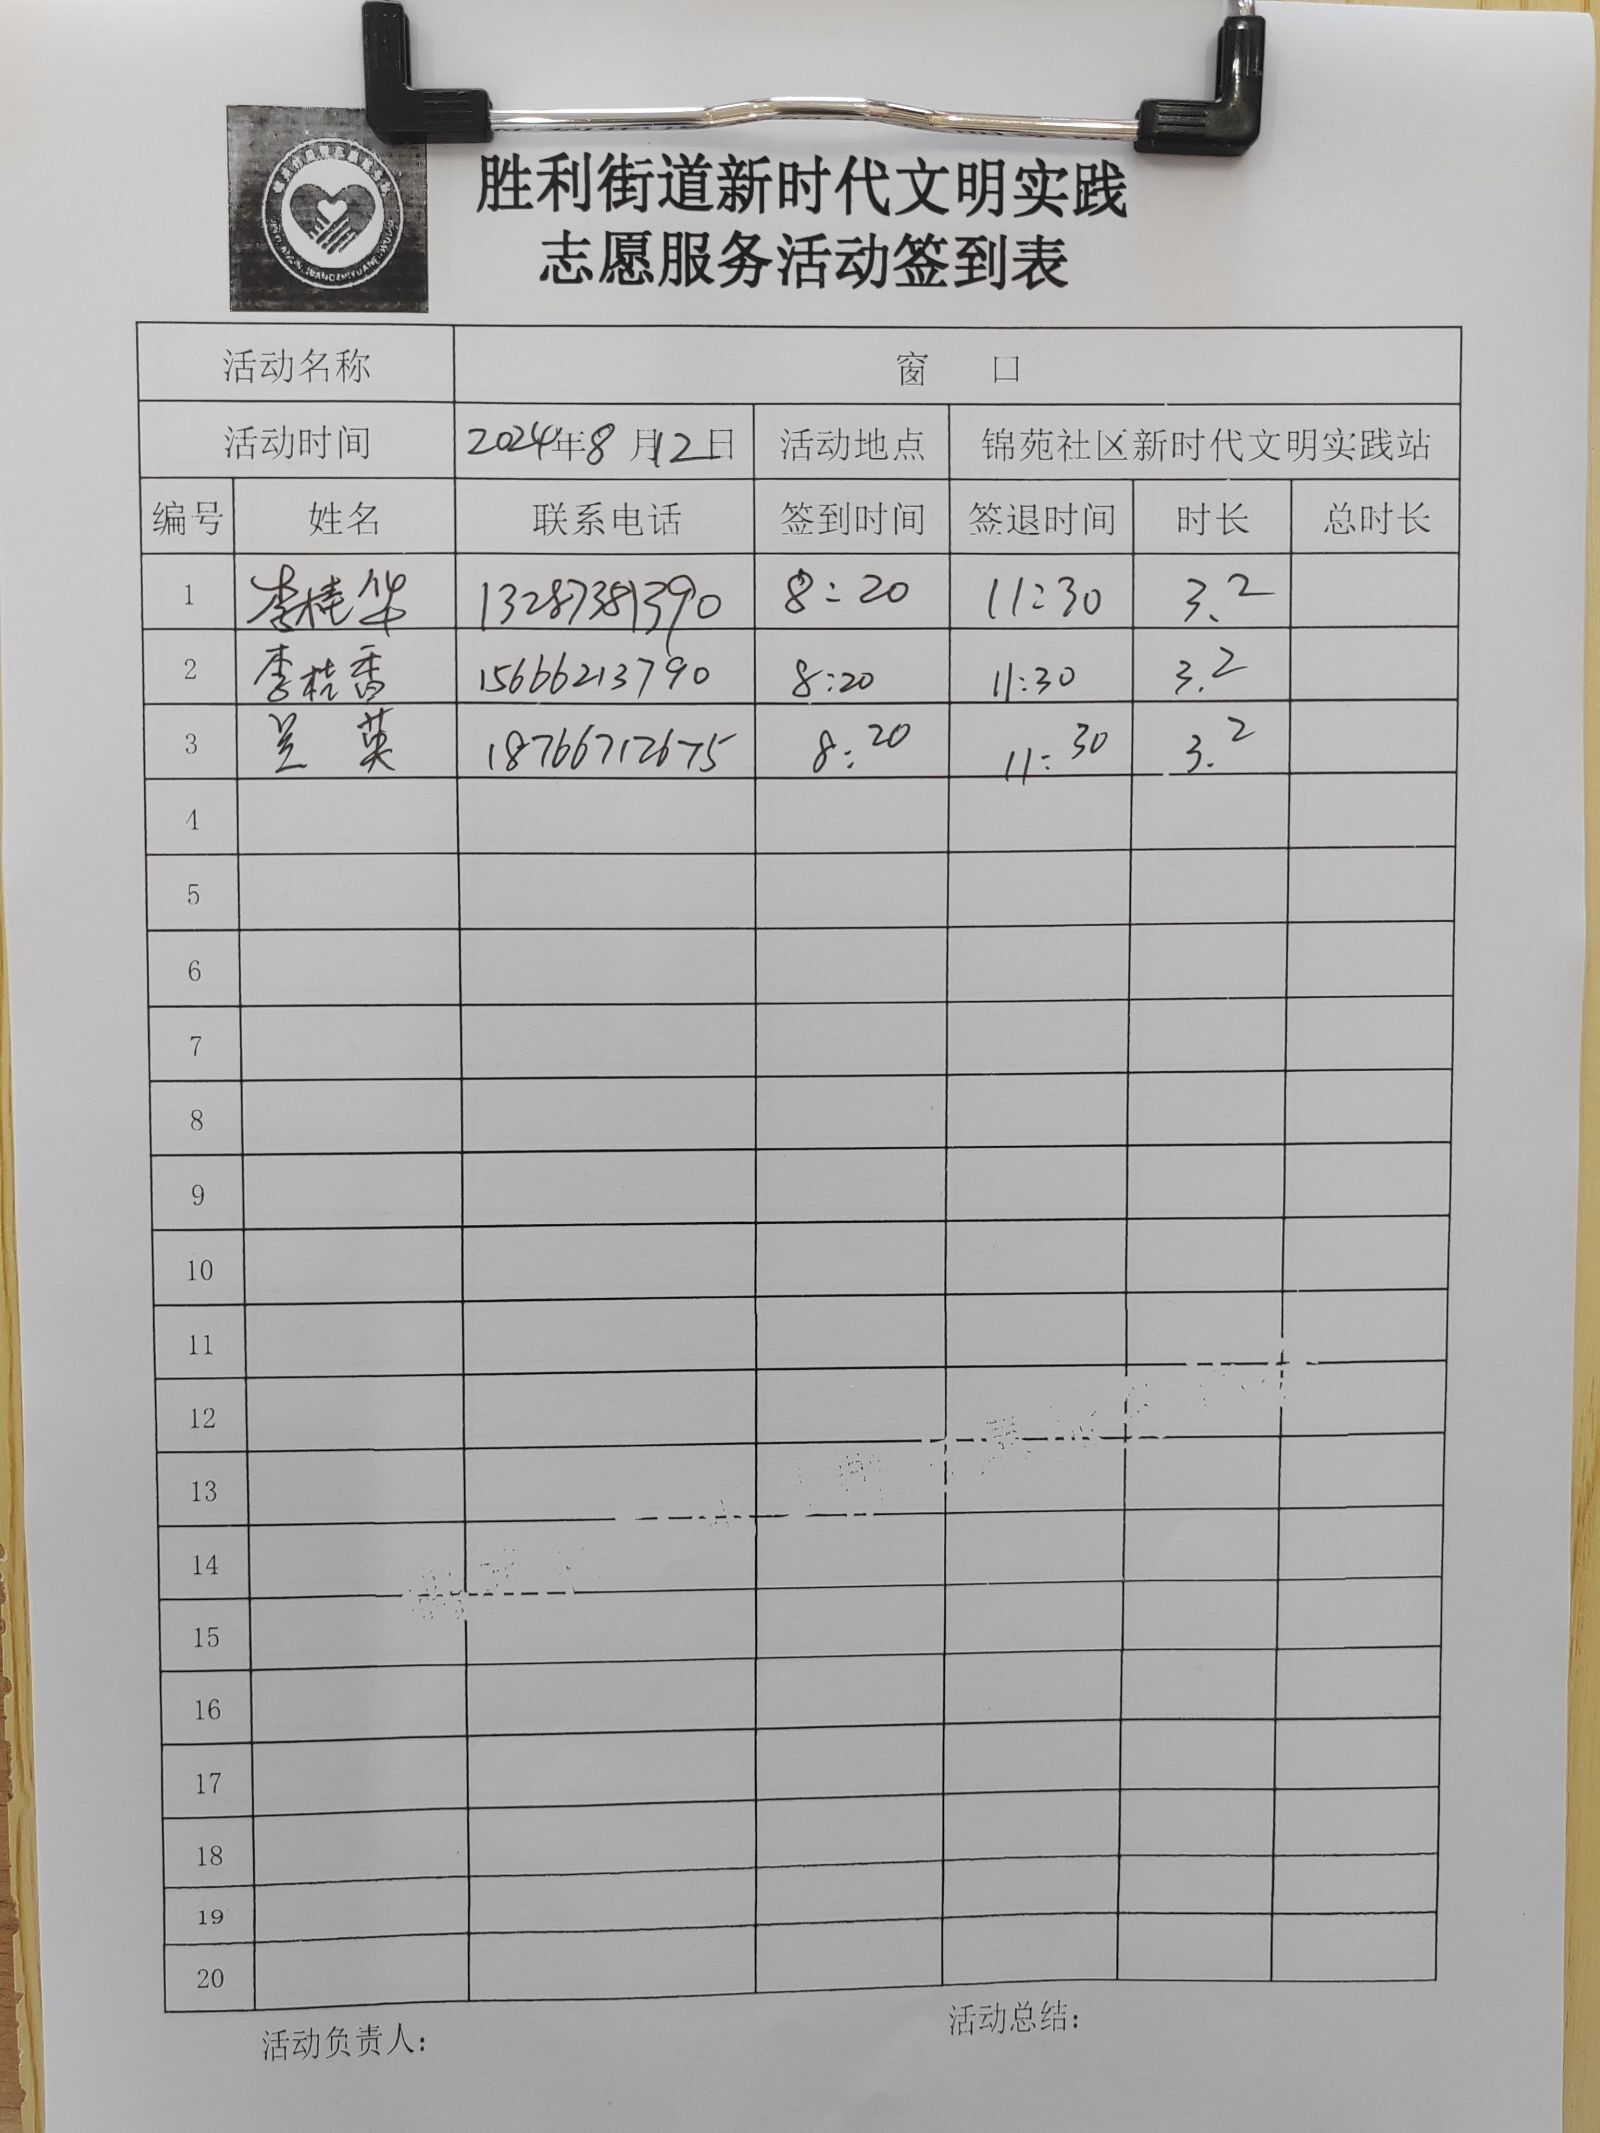 胜利街道新时代文明实践
志愿服务活动签到表
活动名称 窗 口
活动时间 2024年8月12日 活动地点 锦苑社区新时代文明实践站
编号 姓名 联系电话 签到时间 签退时间 时长 总时长
1 李桂华 13287381390 8:20 11:30 3.2
2 李桂香 15666213790 8:20 11:30 3.2
3 兰英 18766712675 8:20 11:30 3.2
4
5
6
7
8
9
10
11
12
13
14
15
16
17
18
19
20
活动负责人: 活动总结: